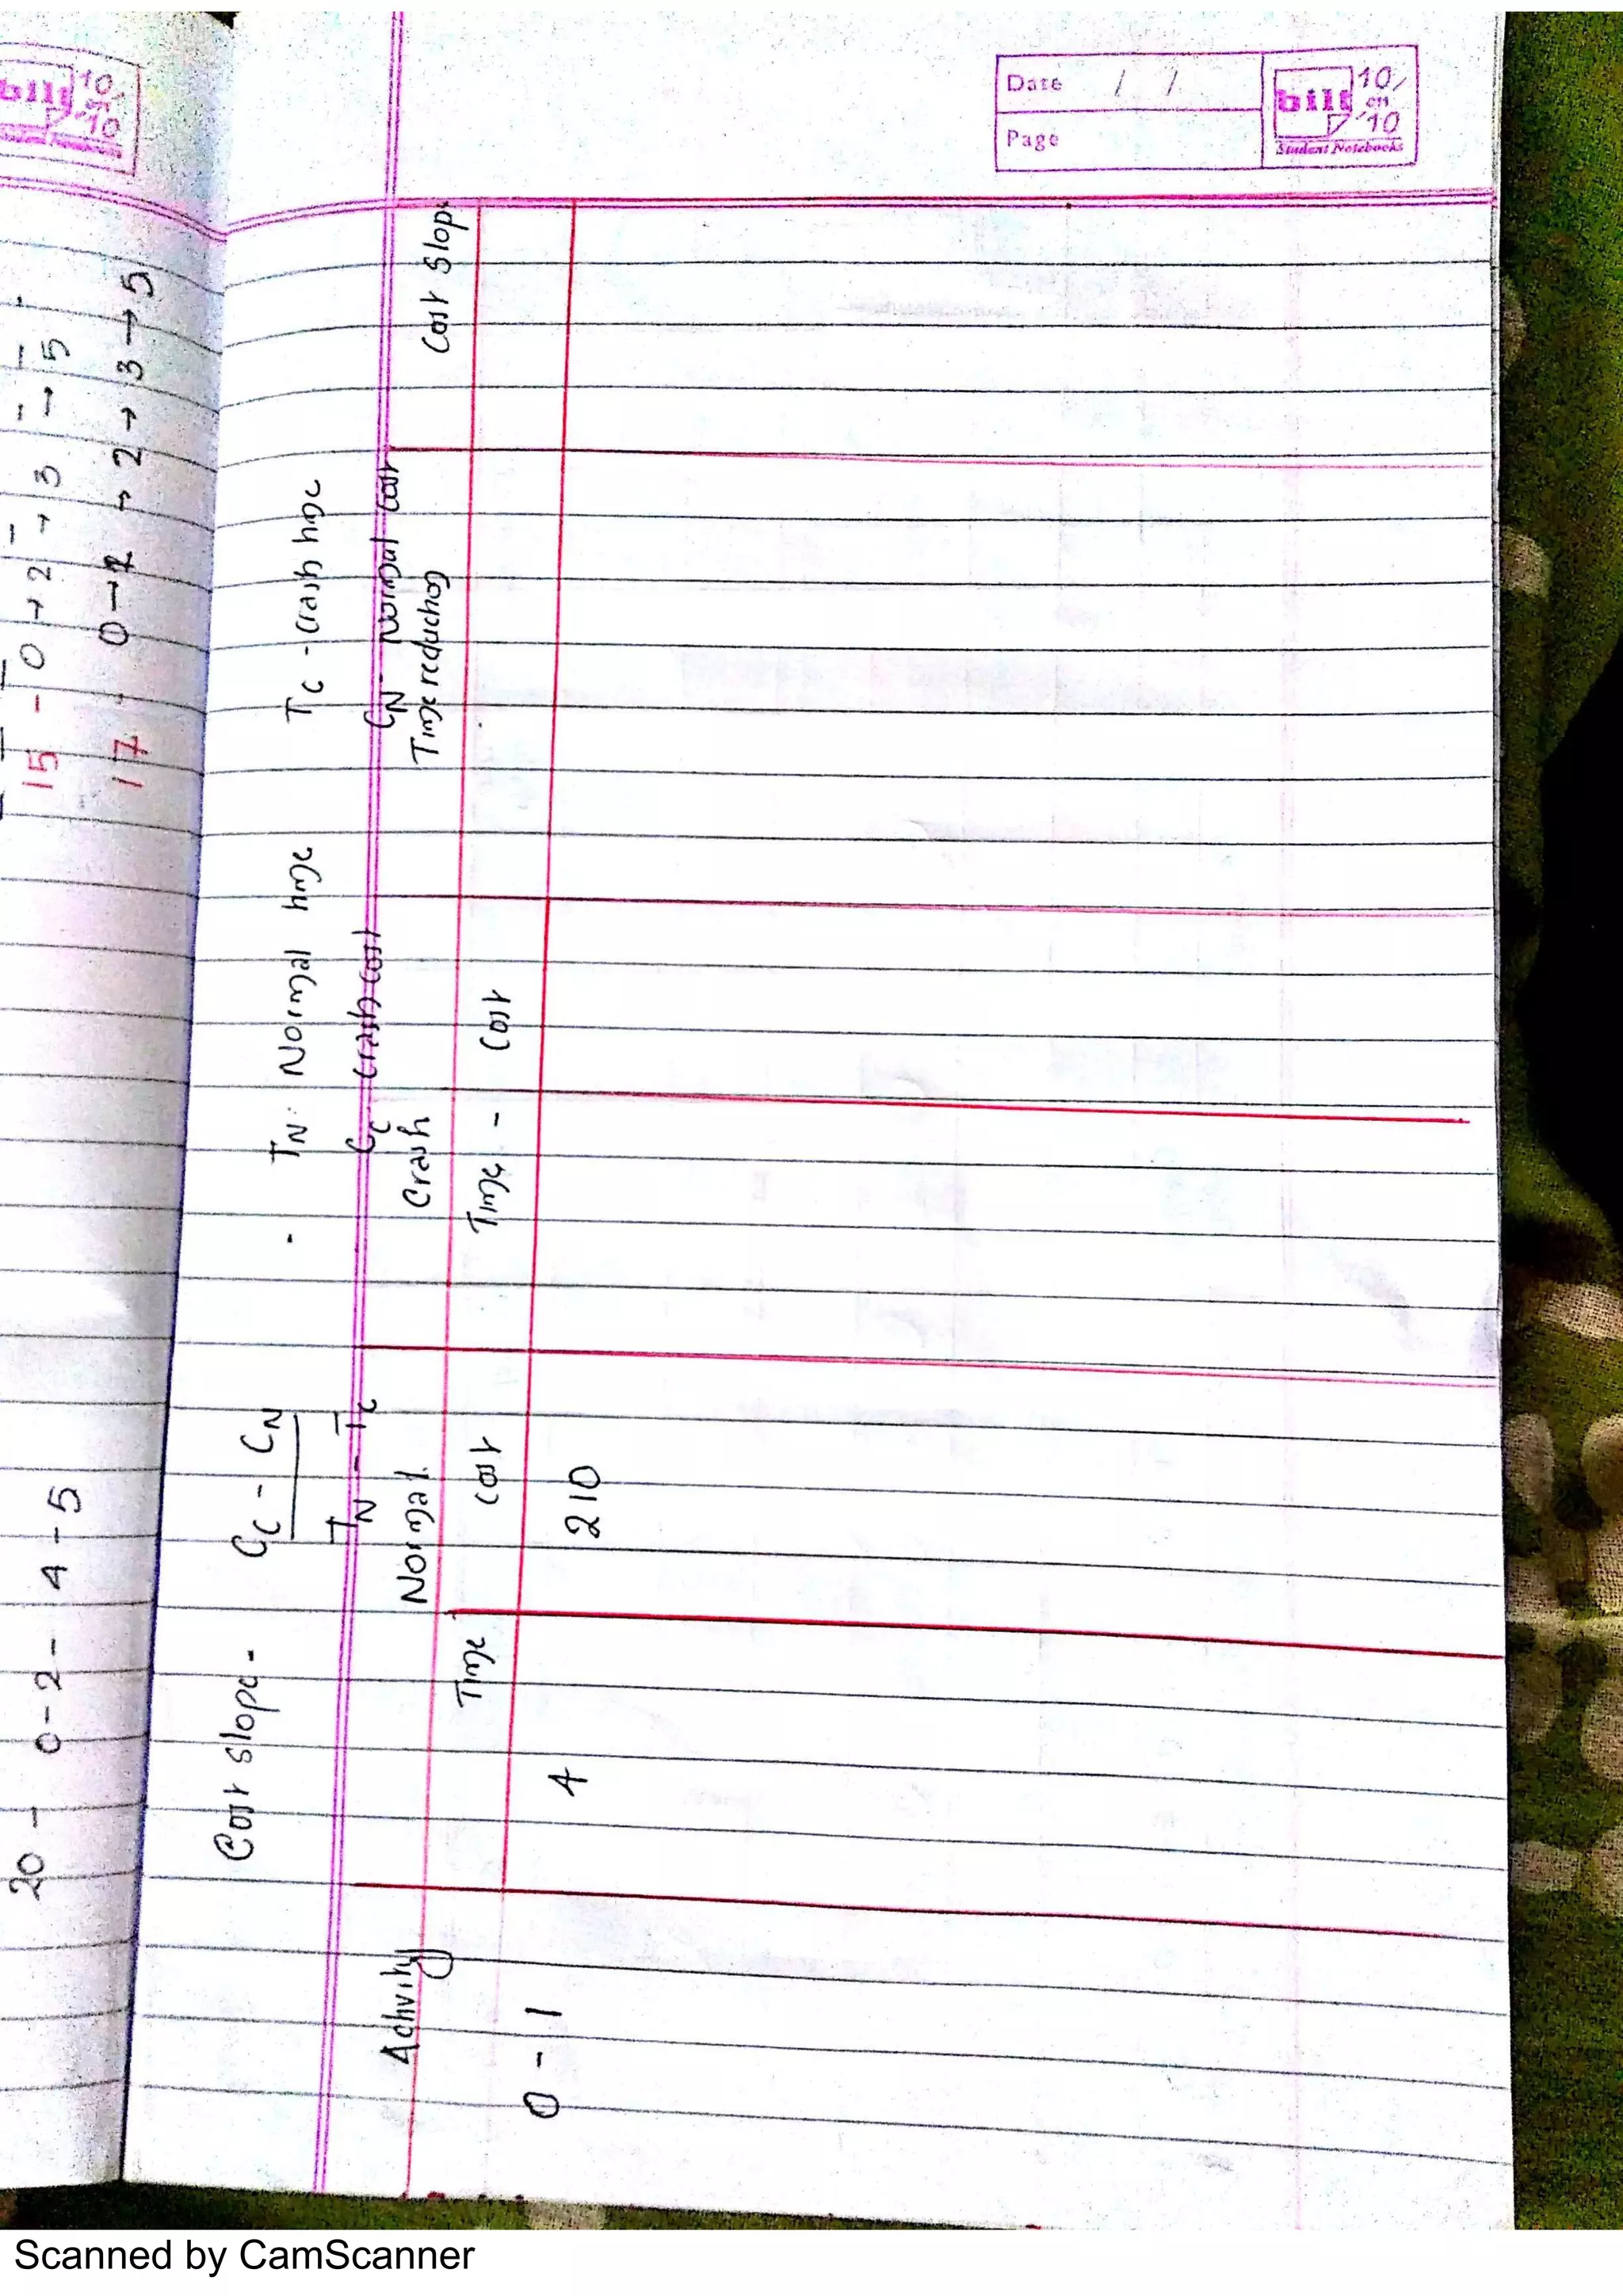 15 - 0 → 2 → 3 → 5
20 - 0 - 2 - 4 - 5
17 - 0 - 1 → 2 → 3 → 5
Date / /
Page
bilt 10 on 10
Student Notebooks
bilt 10 on 10
Cost slope - Cc - CN
TN - Tc
TN. Normal time
Tc - crash time
Cc crash cost
CN - Normal cost
Activity Normal Crash Time reduction Cost slop
Time Cost Time - Cost
0 - 1 4 210
Scanned by CamScanner